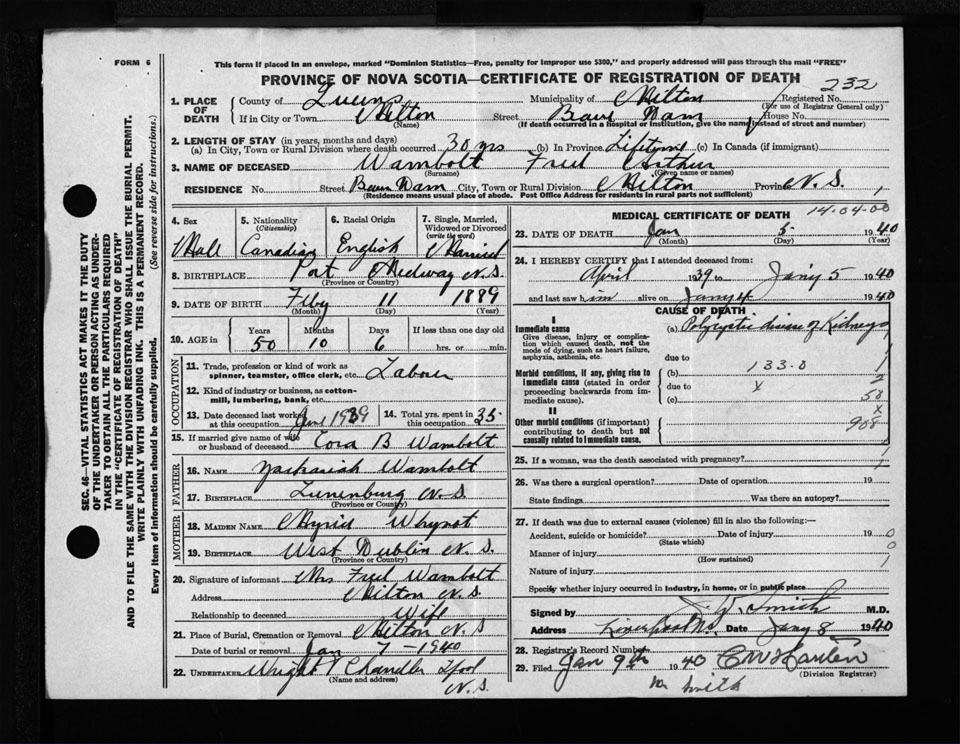 FORM 6
This form if placed in an envelope, marked "Dominion Statistics—Free, penalty for improper use $300," and properly addressed will pass through the mail "FREE"
PROVINCE OF NOVA SCOTIA—CERTIFICATE OF REGISTRATION OF DEATH
232
1. PLACE OF DEATH
County of Queens Municipality of Milton Registered No.
(For use of Registrar General only)
If in City or Town Milton Street Beaver Dam House No.
(Name) (If death occurred in a hospital or institution, give the name instead of street and number)
2. LENGTH OF STAY (in years, months and days)
(a) In City, Town or Rural Division where death occurred 30 yrs (b) In Province Lifetime (c) In Canada (if immigrant)
3. NAME OF DECEASED Wambolt Fred Arthur
(Surname) (Given name or names)
RESIDENCE No. Street Beaver Dam City, Town or Rural Division Milton Province N. S.
(Residence means usual place of abode. Post Office Address for residents in rural parts not sufficient)
SEC. 46—VITAL STATISTICS ACT MAKES IT THE DUTY
OF THE UNDERTAKER OR PERSON ACTING AS UNDER-
TAKER TO OBTAIN ALL THE PARTICULARS REQUIRED
IN THE "CERTIFICATE OF REGISTRATION OF DEATH"
AND TO FILE THE SAME WITH THE DIVISION REGISTRAR WHO SHALL ISSUE THE BURIAL PERMIT.
WRITE PLAINLY WITH UNFADING INK. THIS IS A PERMANENT RECORD.
Every item of Information should be carefully supplied. (See reverse side for instructions.)
4. Sex
Male
5. Nationality
(Citizenship)
Canadian
6. Racial Origin
English
7. Single, Married,
Widowed or Divorced
(write the word)
Married
8. BIRTHPLACE Port Medway N. S.
(Province or Country)
9. DATE OF BIRTH Feby 11 1889
(Month) (Day) (Year)
10. AGE in Years Months Days If less than one day old
50 10 6 hrs. or min.
OCCUPATION
11. Trade, profession or kind of work as
spinner, teamster, office clerk, etc. Laborer
12. Kind of industry or business, as cotton-
mill, lumbering, bank, etc.
13. Date deceased last worked
at this occupation 1939
14. Total yrs. spent in
this occupation 35
15. If married give name of wife
or husband of deceased Cora B Wambolt
FATHER
16. NAME Zachariah Wambolt
17. BIRTHPLACE Lunenburg N. S.
(Province or Country)
MOTHER
18. MAIDEN NAME Whynot
19. BIRTHPLACE West Dublin N. S.
(Province or Country)
20. Signature of informant Mrs Fred Wambolt
Address Milton N. S.
Relationship to deceased Wife
21. Place of Burial, Cremation or Removal Milton N. S
Date of burial or removal Jan 7 - 1940
22. UNDERTAKER Wright Chandler Lpool
(Name and address) N. S.
MEDICAL CERTIFICATE OF DEATH 14-04-00
23. DATE OF DEATH Jan 5 1940
(Month) (Day) (Year)
24. I HEREBY CERTIFY that I attended deceased from:
April 1939 to Jany 5 1940
and last saw him alive on Jany 4 1940
CAUSE OF DEATH
I
Immediate cause
Give disease, injury or complica-
tion which caused death, not the
mode of dying, such as heart failure,
asphyxia, asthenia, etc.
(a) Polycystic disease of Kidneys
due to
Morbid conditions, if any, giving rise to
immediate cause (stated in order
proceeding backwards from im-
mediate cause).
(b) 133.0
due to x
(c)
58
x
908
II
Other morbid conditions (if important)
contributing to death but not
causally related to immediate cause.
25. If a woman, was the death associated with pregnancy?
26. Was there a surgical operation? Date of operation 19
State findings Was there an autopsy?
27. If death was due to external causes (violence) fill in also the following:—
Accident, suicide or homicide? Date of injury 19
(State which)
Manner of injury
(How sustained)
Nature of injury
Specify whether injury occurred in industry, in home, or in public place
Signed by J. W. Smith M.D.
Address Liverpool N.S. Date Jany 8 1940
28. Registrar's Record Number
29. Filed Jan 9th 1940
(Division Registrar)
Smith